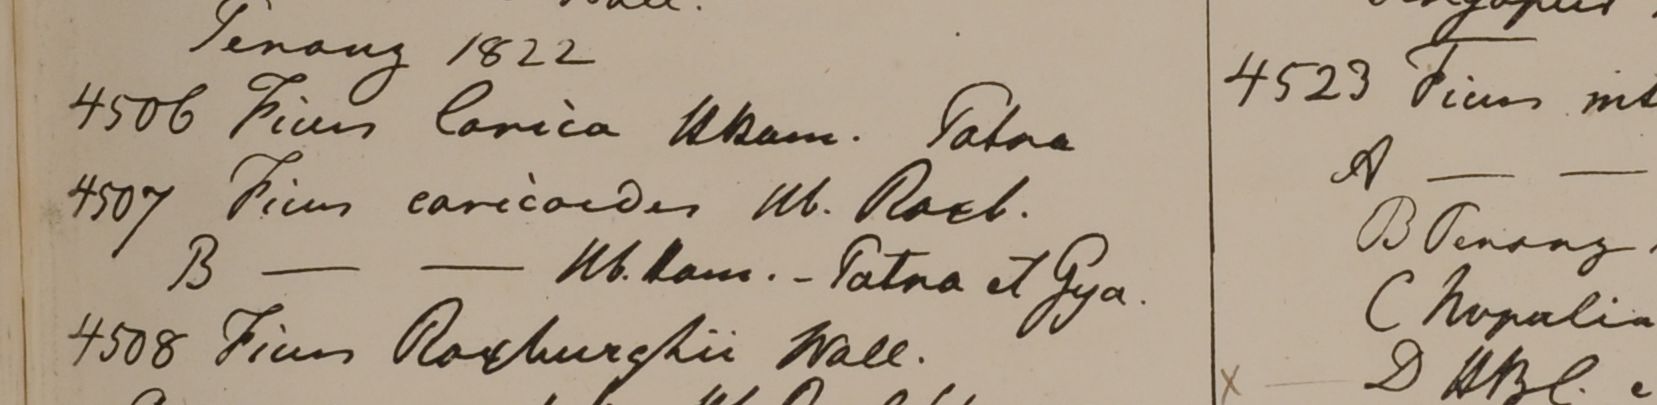 Wall.
Penang 1822
4506 Ficus Carica HHam. Patna
4507 Ficus caricoides Hb. Roxb.
B — — Hb. Ham. - Patna et Gya.
4508 Ficus Roxburghii Wall.
4523 Ficus
A — —
B Penang
C Napalia
D HBC.